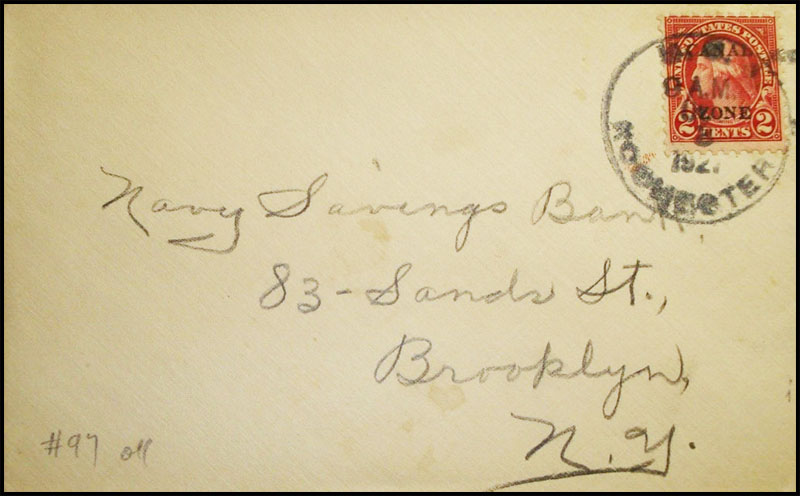 UNITED STATES POSTAGE
CANAL
ZONE
2 CENTS 2
8 A.M.
1927
ROCHESTER
Navy Savings Bank,
83 - Sands St.,
Brooklyn,
N.Y.
#97